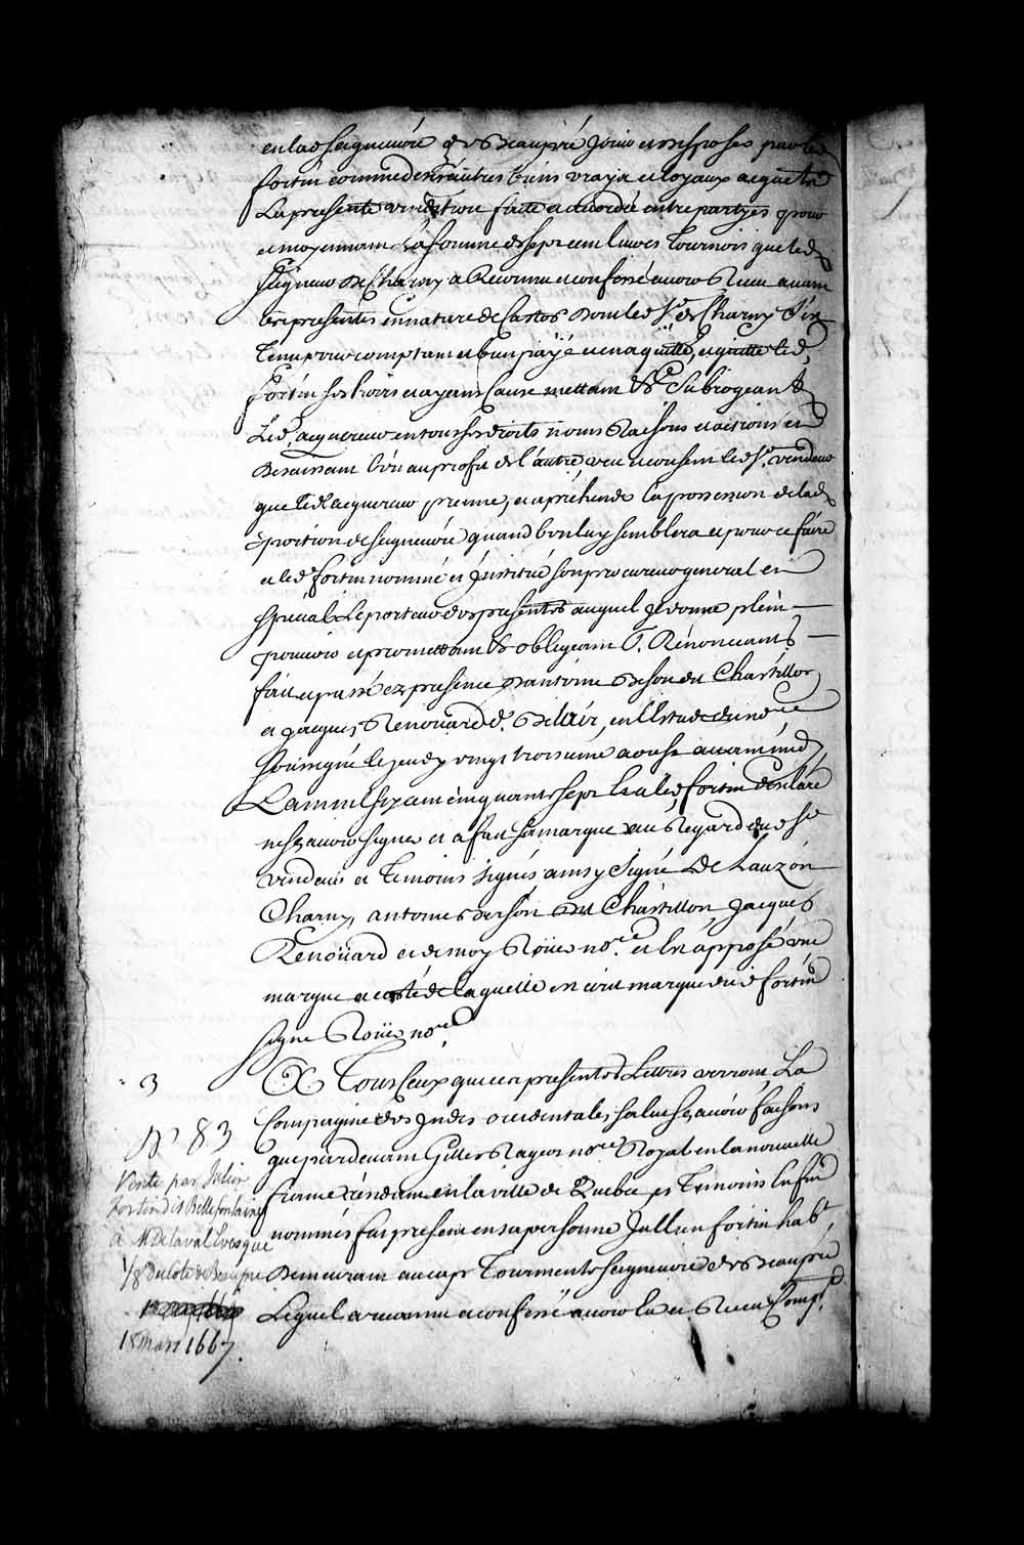 en lad seigneurie de Beaupré Jouir et disposer par led
fortin comme des autres biens vrays et loyaux acquets
La presente vendition faite et accordée entre partyes pour
et moyennant La somme de sept cent livres Tournois que led
Seigneur De Charny a Reconnu et confessé avoir Receu avant
les presentes en nature de Castor Dont led Sr de Charny s'en
Tenu pour comptant et bien payé et en a quitté, et quitte led
Fortin ses hoirs et ayans Cause mettant & Subrogeant
Led. acquereur en tous ses droits noms Raisons et actions
Desaisissant l'un au profit de l'autre, veu et consent led Sr. vendeur
que led acquereur prenne, et apréhende la possession de lad
portion de Seigneurie quand bon luy semblera et pour ce faire
a led fortin nommé et Institué son procureur general et
special Le porteur des presentes auquel Il donne plein
pouvoir et promettant & obligeant &. Rénonceant &
fait et passé ez presence D'antoine Berson du Chastillon
et Jacques Renoüard d. Bellair, en L'Estude du nore
soussigné le jeudy vingt troisieme aoust avant midy
L'an mil six cent cinquante sept Et a led fortin déclaré
ne sçavoir signer et a fait sa marque au Regard dud Sr
vendeur et Temoins signés ainsy Signé De Lauzon
Charny, antoine Berson du Chastillon, Jacques
Renoüard et de moy Roüer nore. et Est apposé une
marque a costé de laquelle est écrit marque dud fortin
signe Roüer nore.
A Tous Ceux qui ces presentes Lettres verront, La
Compagnie des Indes occidentales salut sçavoir faisons
que pardevant Gilles Rageot nore Royal en la nouvelle
france résidant en la ville de Quebec et Temoins En fin
nommés fut present en sa personne Jullien fortin habt.
Demeurant au cap Tourmente seigneurie de Beaupré
Lequel a reconnu et confessé avoir eu et Receu Compt.
3
No 83
Vente par Julien
Fortin dit Bellefontaine
à M De laval Evesque
1/8 du Coté de Beaupré
18 mars 1667.